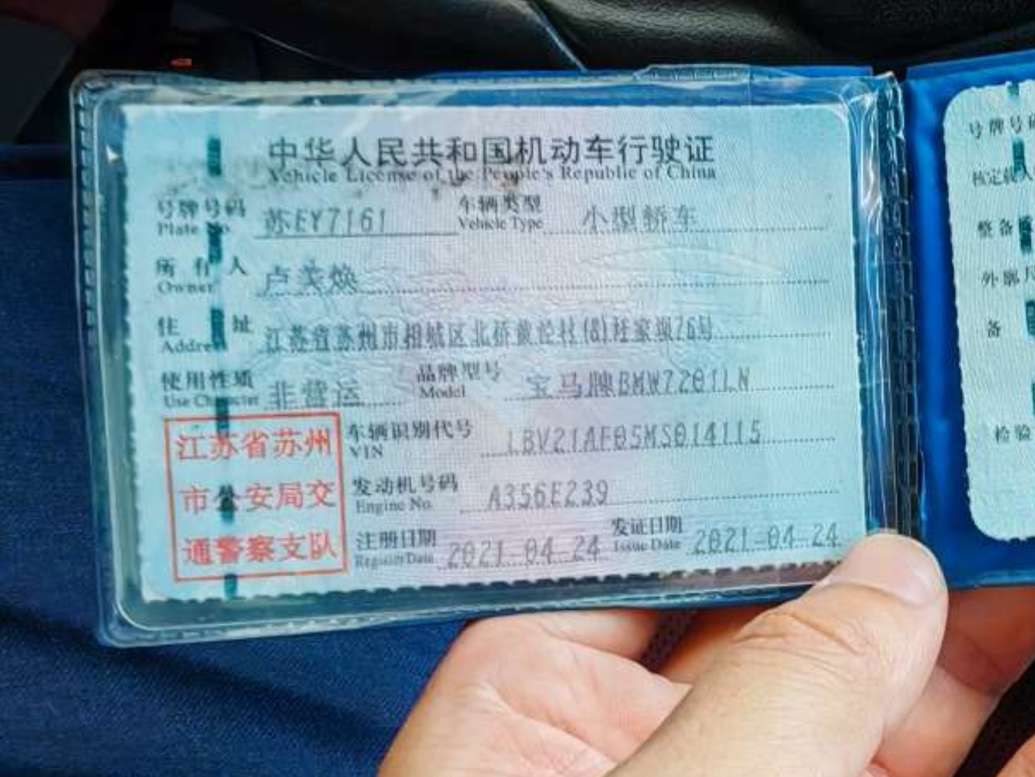 中华人民共和国机动车行驶证
Vehicle License of the People's Republic of China
号牌号码 苏EY7161 车辆类型 小型轿车
Plate No. Vehicle Type
所有人 卢美焕
Owner
住址 江苏省苏州市相城区北桥黄泾村(8)旺家坝76号
Address
使用性质 非营运 品牌型号 宝马牌BMW7201LN
Use Character Model
车辆识别代号 LBV21AF05MS014115
VIN
发动机号码 A356E239
Engine No.
注册日期 2021-04-24 发证日期 2021-04-24
Register Date Issue Date
江苏省苏州
市公安局交
通警察支队
号牌号
核定载人
整备
外廓
备
检验